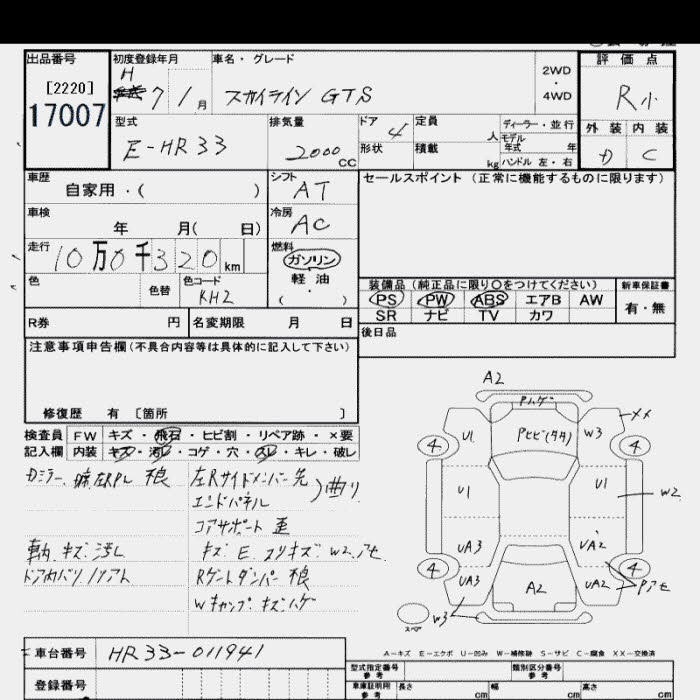 出品番号
[2220]
17007
初度登録年月
H
7 / 1 月
車名・グレード
スカイライン GTS
2WD
・
4WD
評価点
R小
型式
E-HR33
排気量
2000 CC
ドア
4
形状
定員
人
積載
kg
ディーラー・並行
モデル
年式 年
ハンドル 左・右
外装 内装
D C
車歴
自家用・( )
シフト
AT
セールスポイント (正常に機能するものに限ります)
車検
年 月( 日)
冷房
AC
走行
10万0千320km
燃料
ガソリン
軽 油
( )
色
色替
色コード
KH2
装備品 (純正品に限り○をつけてください)
新車保証書
PS PW ABS エアB AW
SR ナビ TV カワ
有・無
R券 円
名変期限 月 日
後日品
注意事項申告欄(不具合内容等は具体的に記入して下さい)
修復歴 有 〔箇所 〕
検査員
記入欄
FW キズ・飛石・ヒビ割・リペア跡・×要
内装 キズ・汚レ・コゲ・穴・スレ・キレ・破レ
左Rサイドメンバー先
エンドパネル
)曲り
コアサポート 歪
車内 キズ 汚レ
キズ E スリキズ W2 アセ
ドア内バリ ノリアト
Wキャップ キズ ハゲ
A2
Pハゲ
XX
U1
Pヒビ(タタ)
W3
4
4
U1
U1
W2
UA3
UA2
4
4
UA3
A2
UA2
Pアセ
W3
スペア
A-キズ E-エクボ U-凹み W-補修跡 S-サビ C-腐食 XX-交換済
車台番号
HR33-011941
型式指定番号
参考
類別区分番号
参考
登録番号
車庫証明用
参考
長さ cm
幅 cm
高さ cm